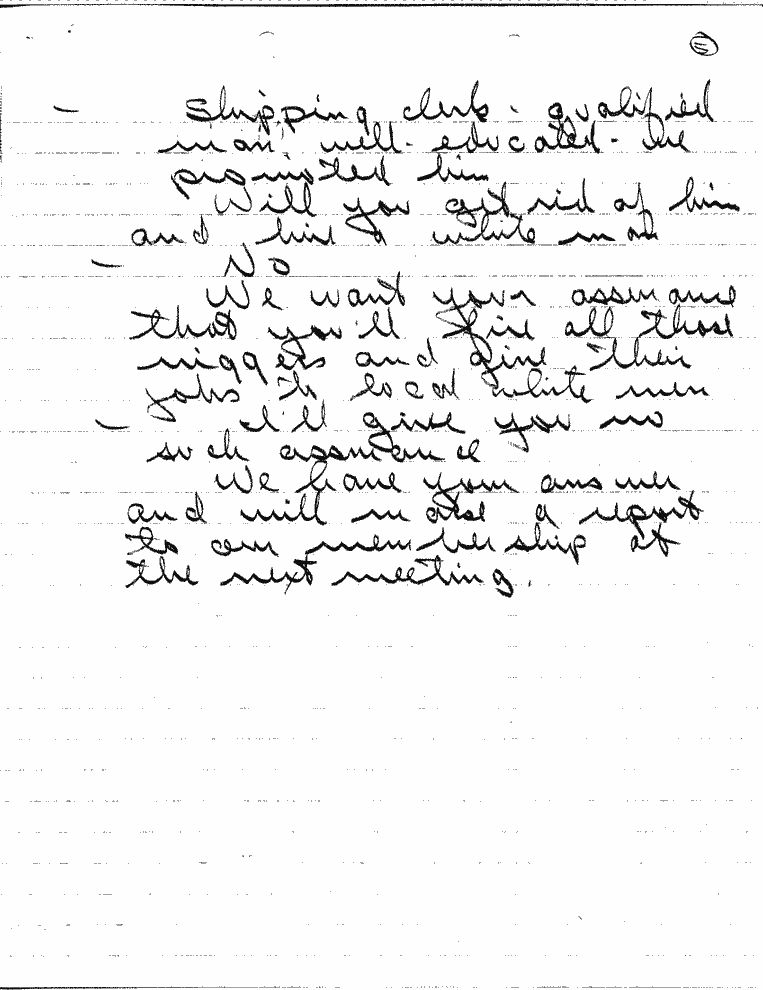 5
— Shipping clerk - qualified
man, well-educated - we
promoted him
Will you get rid of him
and hire a white man
— No
We want your assurance
that you'll fire all those
niggers and give their
jobs to local white men
— I'll give you no
such assurance
We have your answer
and will make a report
to our membership at
the next meeting.